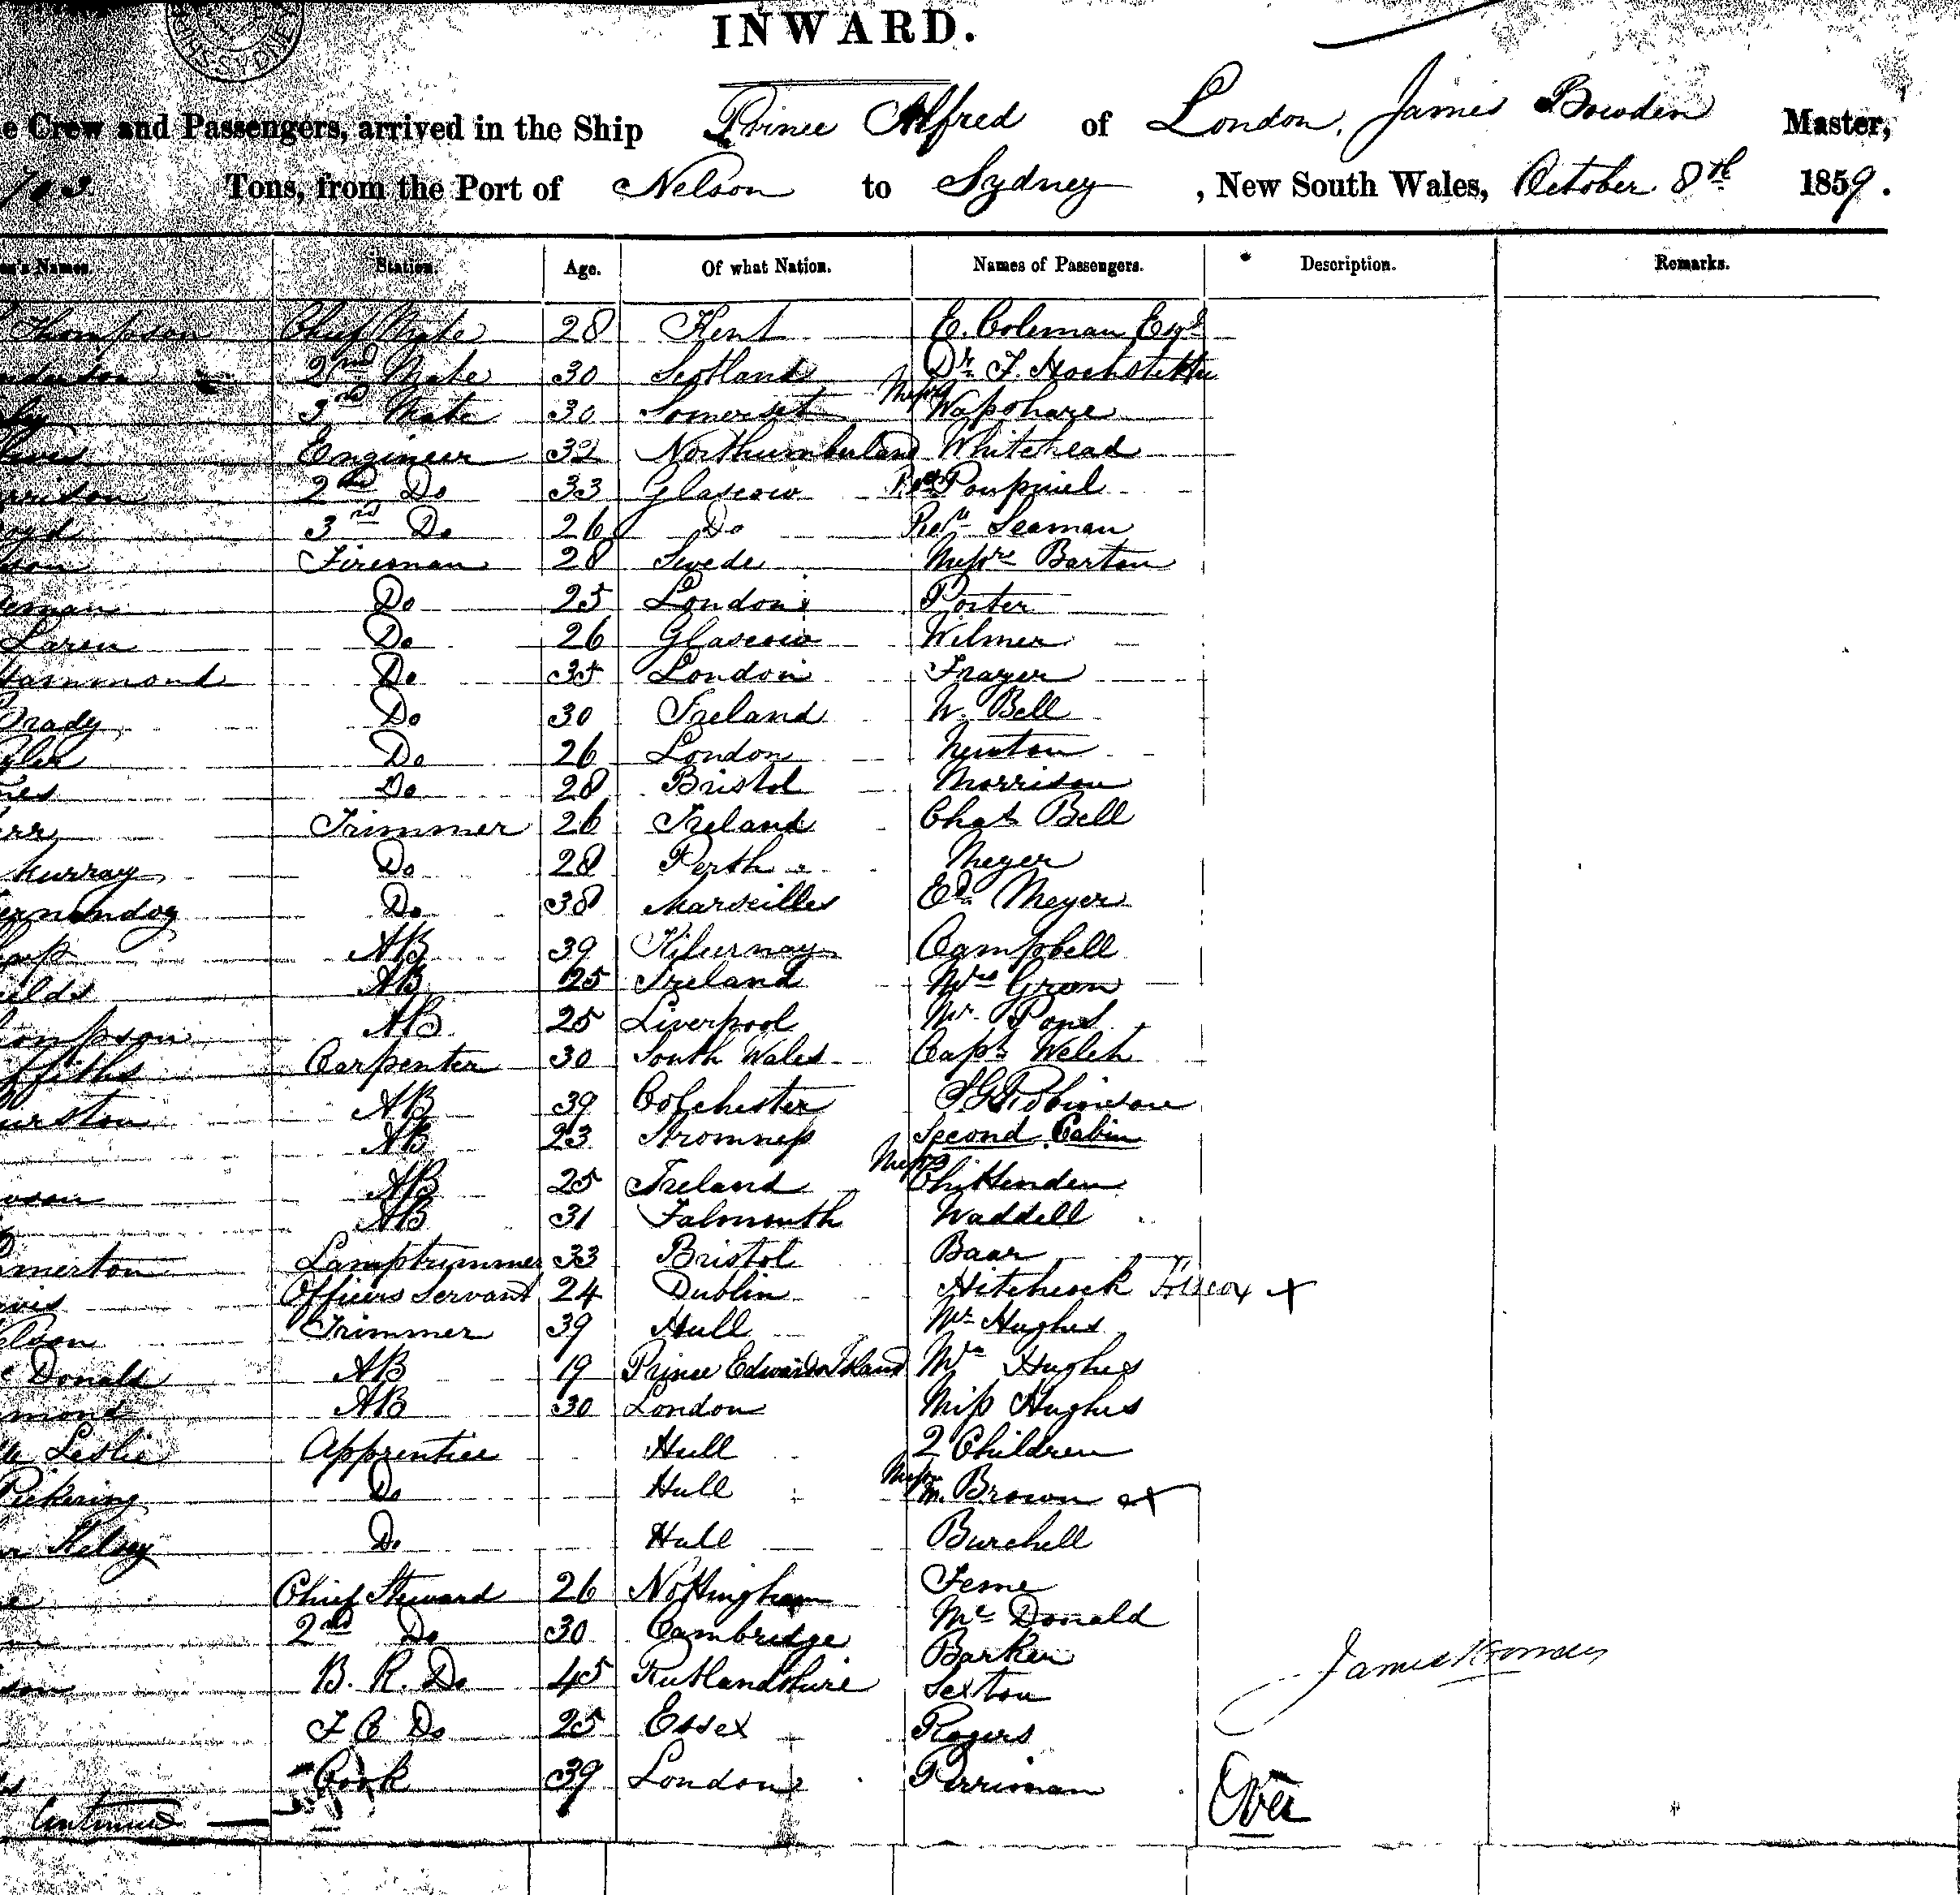 INWARD.
e Crew and Passengers, arrived in the Ship Prince Alfred of London, James Bowden Master,
703 Tons, from the Port of Nelson to Sydney, New South Wales, October 8th 1859.
Names. Station. Age. Of what Nation. Names of Passengers. Description. Remarks.
Thompson Chief Mate 28 Kent E. Coleman Esqr
2nd Mate 30 Scotland Dr. F. Hochstetter
3rd Mate 30 Somerset Messrs Wapshare
Engineer 32 Northumberland Whitehead
rrison 2nd Do 33 Glascow Poupinel
oyd 3rd Do 26 Do Revd Seaman
son Fireman 28 Swede Messrs Barton
eman Do 25 London Porter
Laren Do 26 Glascow Wilmer
Hammond Do 35 London Frazer
Brady Do 30 Ireland W. Bell
yler Do 26 London Newton
nes Do 28 Bristol Morrison
err Trimmer 26 Ireland Chas Bell
Murray Do 28 Perth Meyer
Do 38 Marseilles Ed. Meyer
AB 39 Campbell
ields AB 25 Ireland Mrs Green
ompson AB 25 Liverpool Mr. Pond
ffiths Carpenter 30 South Wales Capt Welch
urston AB 39 Colchester Robinson
AB 23 Stromness Second Cabin
AB 25 Ireland Messrs Chittenden
AB 31 Falmouth Waddell
merton Lamptrimmer 33 Bristol Baar
vis Officers Servant 24 Dublin Hitchcock x
elson Trimmer 39 Hull Mr Hughes
c Donald AB 19 Prince Edwards Island Mrs Hughes
mond AB 30 London Miss Hughes
Leslie Apprentice Hull 2 Children
Pickering Do Hull Messrs M. Brown x
Kelsey Do Hull Burchell
Chief Steward 26 Nottingham Feme
2nd Do 30 Cambridge Mc Donald
Barker
son B. R. Do 45 Rutlandshire Sexton
F C Do 25 Essex Rogers
Cook 39 London Perriman
James Bowden
Continued Over